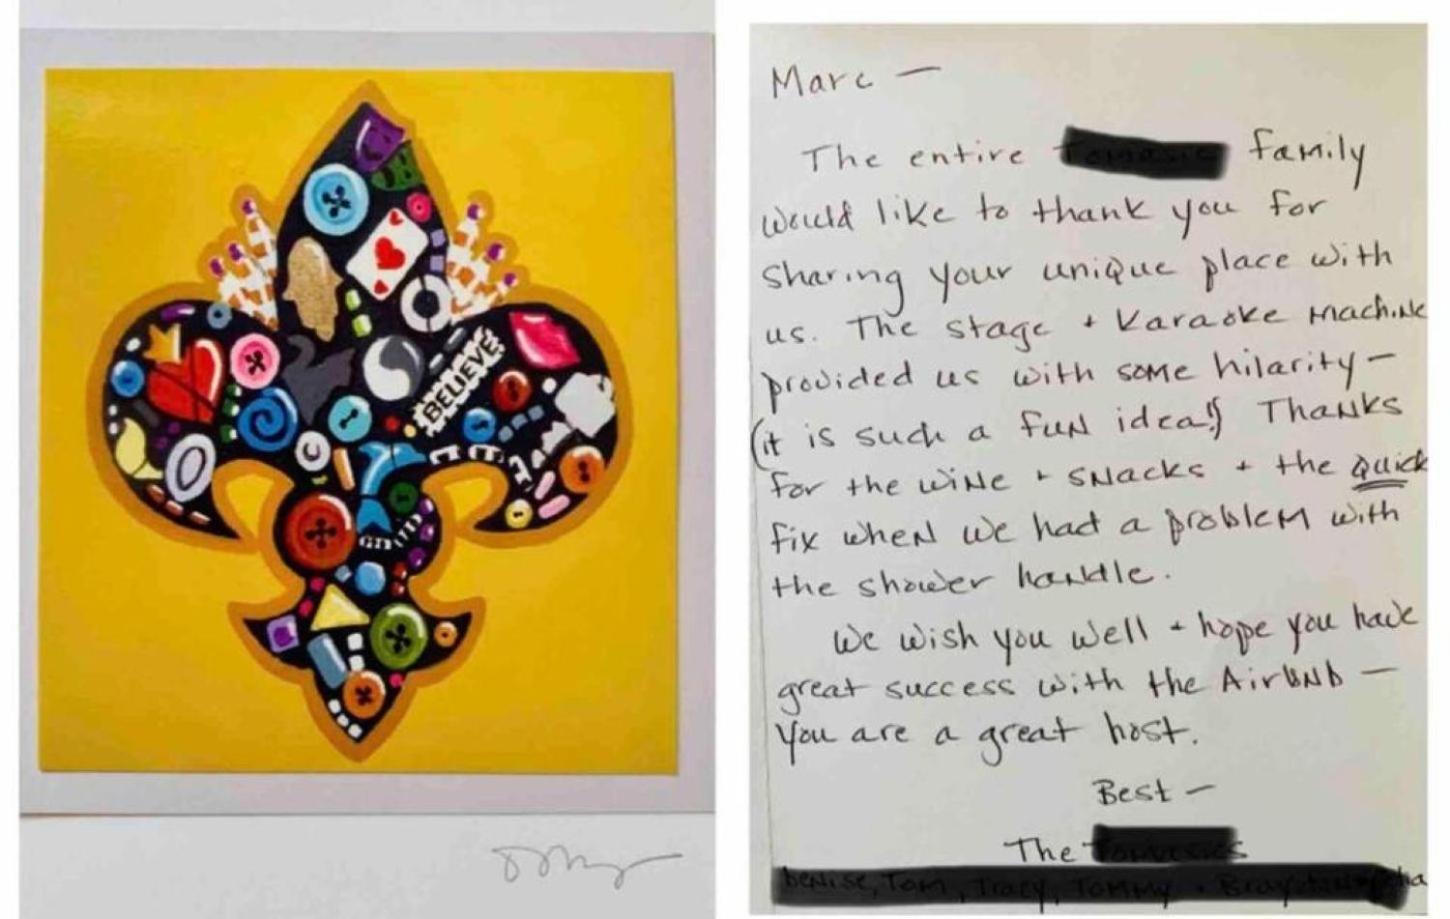 BELIEVE
Marc —
The entire family
would like to thank you for
sharing your unique place with
us. The stage + Karaoke machine
provided us with some hilarity —
(it is such a fun idea!) Thanks
for the wine + snacks + the quick
fix when we had a problem with
the shower handle.
We wish you well + hope you have
great success with the AirBNB —
You are a great host.
Best —
The